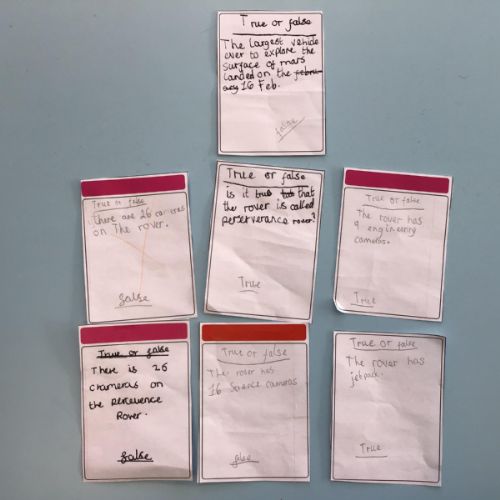 True or false
The largest vehicle
ever to explore the
surface of mars
landed on the febru
ary 16 Feb.
false
True or false
there are 26 cameras
on The rover.
false
True or false
is it true that
the rover is called
perserverance rover?
True
True or false
The rover has
9 engineery
cameras.
True
True or false
There is 26
crameras on
the perseverence
Rover.
false
True or false
The rover has
16 Science cameras
True or false
The rover has
jetpack.
True